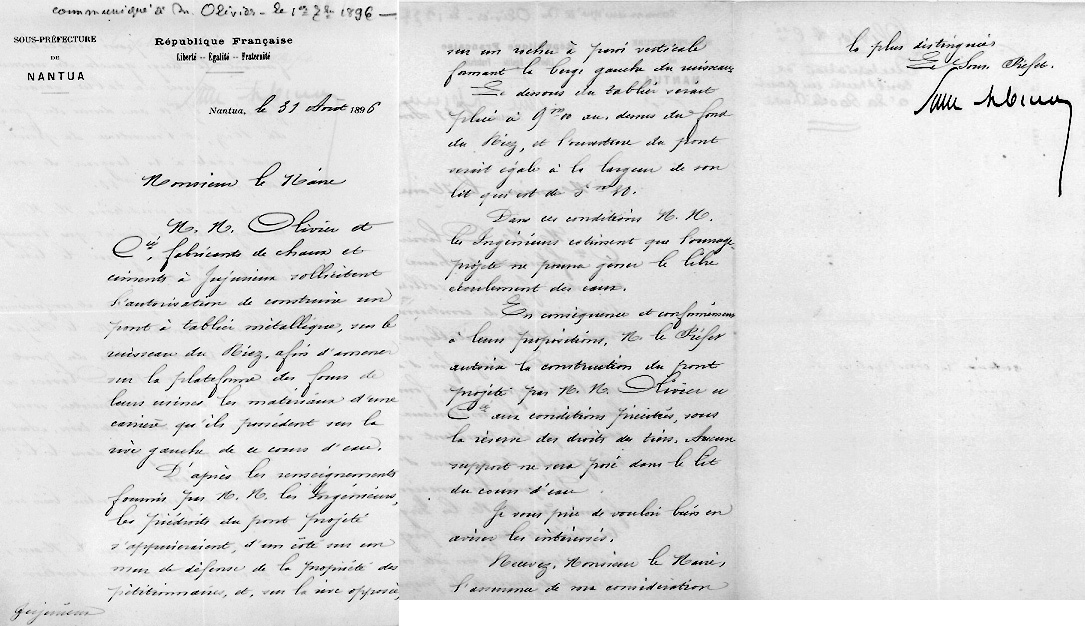 communiqué à Mr. Olivier - le 1er 7bre 1896 —
SOUS-PRÉFECTURE
DE
NANTUA
République Française
Liberté – Égalité – Fraternité
Nantua, le 31 Août 1896
Monsieur le Maire
M. M. Olivier et
Cie, fabricants de chaux et
ciments à Jujurieux sollicitent
l'autorisation de construire un
pont à tablier métallique, sur le
ruisseau du Riez, afin d'amener
sur la plateforme des fours de
leurs usines les matériaux d'une
carrière qu'ils possèdent sur la
rive gauche de ce cours d'eau.
D'après les renseignements
fournis par M. M. les Ingénieurs,
les piédroits du pont projeté
s'appuieraient, d'un côté sur un
mur de défense de la propriété des
pétitionnaires, et, sur la rive opposée
Jujurieux
sur un rocher à paroi verticale
formant la berge gauche du ruisseau.
Le dessous du tablier serait
placé à 9m00 au dessus du fond
du Riez, et l'ouverture du pont
serait égale à la largeur de son
lit qui est de 5m
Dans ces conditions M. M.
les Ingénieurs estiment que l'ouvrage
projeté ne pourra gêner le libre
écoulement des eaux.
En conséquence et conformément
à leurs propositions, M. le Préfet
autorise la construction du pont
projeté par M. M. Olivier et
Cie aux conditions précitées, sous
la réserve des droits des tiers. Aucun
support ne sera posé dans le lit
du cours d'eau.
Je vous prie de vouloir bien en
aviser les intéressés.
Recevez, Monsieur le Maire,
l'assurance de ma considération
la plus distinguée
Le Sous-Préfet.